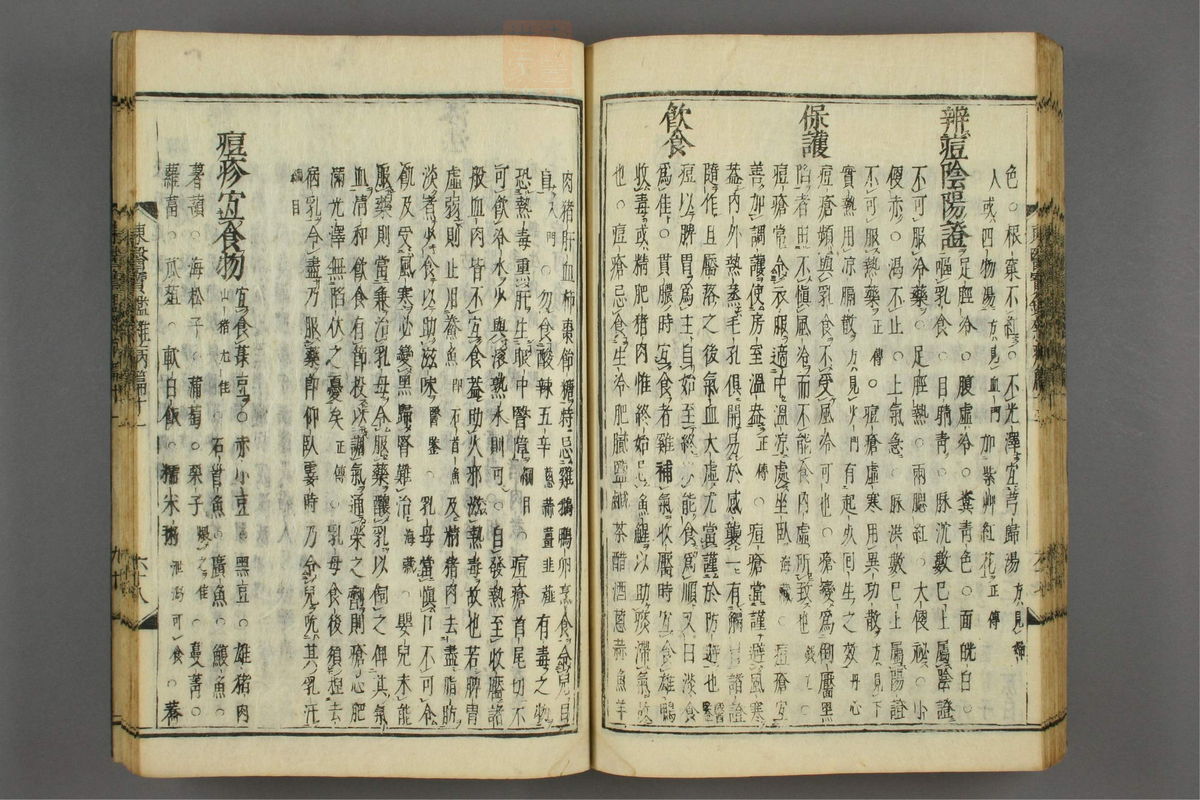 色○根窠不紅○不光澤宜芎歸湯方見
人或四物湯方見血門加紫艸紅花正傳
辨痘陰陽證 足脛冷○腹虛冷○糞青色○面㿠白○
不可服冷藥○嘔乳食○目睛青○脉沉數已上屬陰證
足脛熱○兩腮紅○大便祕○小
便赤○渴不止○上氣急○脉洪數已上屬陽證
不可服熱藥正傳○痘瘡虛寒用異功散方見下
實熱用凉膈散方見火門有起死回生之效丹心
保護 痘瘡頻與乳食不受風冷可也○痘瘡變爲倒靨黑
陷者由不愼風冷而不能食內虛所致也錢乙○
痘瘡常令衣服適中溫凉處坐臥海藏○痘瘡宜
善加調護使房室溫盎正傳○痘瘡當謹避風寒
盖內外熱蒸毛孔俱開易於感襲一有觸冒諸證
隨作且靨落之後氣血大虛尤當謹於防避也醫鑒
飮食 痘以脾胃爲主自始至終以能食爲順又曰淡食
爲佳○貫膿時宜食者雞補氣收靨時宜食雄鴨
收毒或精肥猪肉惟終始忌魚腥以助痰滯氣故
也○痘瘡忌食生冷肥膩鹽鹹茶醋酒葱蒜魚羊
肉猪肝血柿棗飴糖特忌雞鵝鴨卵烹食令兒目
盲入門○勿食酸辣五辛葱蒜薑韭薤有毒之物
恐熱毒熏肝生眼中醫膏綱目○痘瘡首尾切不
可飮冷水與滾熱水則可○自發熱至收靨諸
般血肉皆不宜食盖助火邪滋熱毒故也若脾胃
虛弱則止用鯗魚卽石首魚及精猪肉去盡脂肪
淡煮少食以助滋味醫鑒○乳母當愼口不可食
飢及受風寒必變黑歸腎難治海藏○嬰兒未能
服藥則當兼治乳母令服藥釀乳以飼之俾其氣
血淸和飮食有節投以調氣通榮之劑則瘡心肥
滿光澤無陷伏之憂矣正傳○乳母食後須捏去
病乳令盡乃服藥卽仰臥霎時乃令兒吮其乳汁
綱目
痘疹宜食物 宜食菉豆○赤小豆○黑豆○雄猪肉
山猪尤佳○石首魚○廣魚○鰒魚○
薯蕷○海松子○葡萄○栗子煨之佳○蔓菁○
蘿葍○瓜葅○軟白飯○糯米粥泄瀉可食○蕎
東醫寶鑑雜病篇十一
六十八